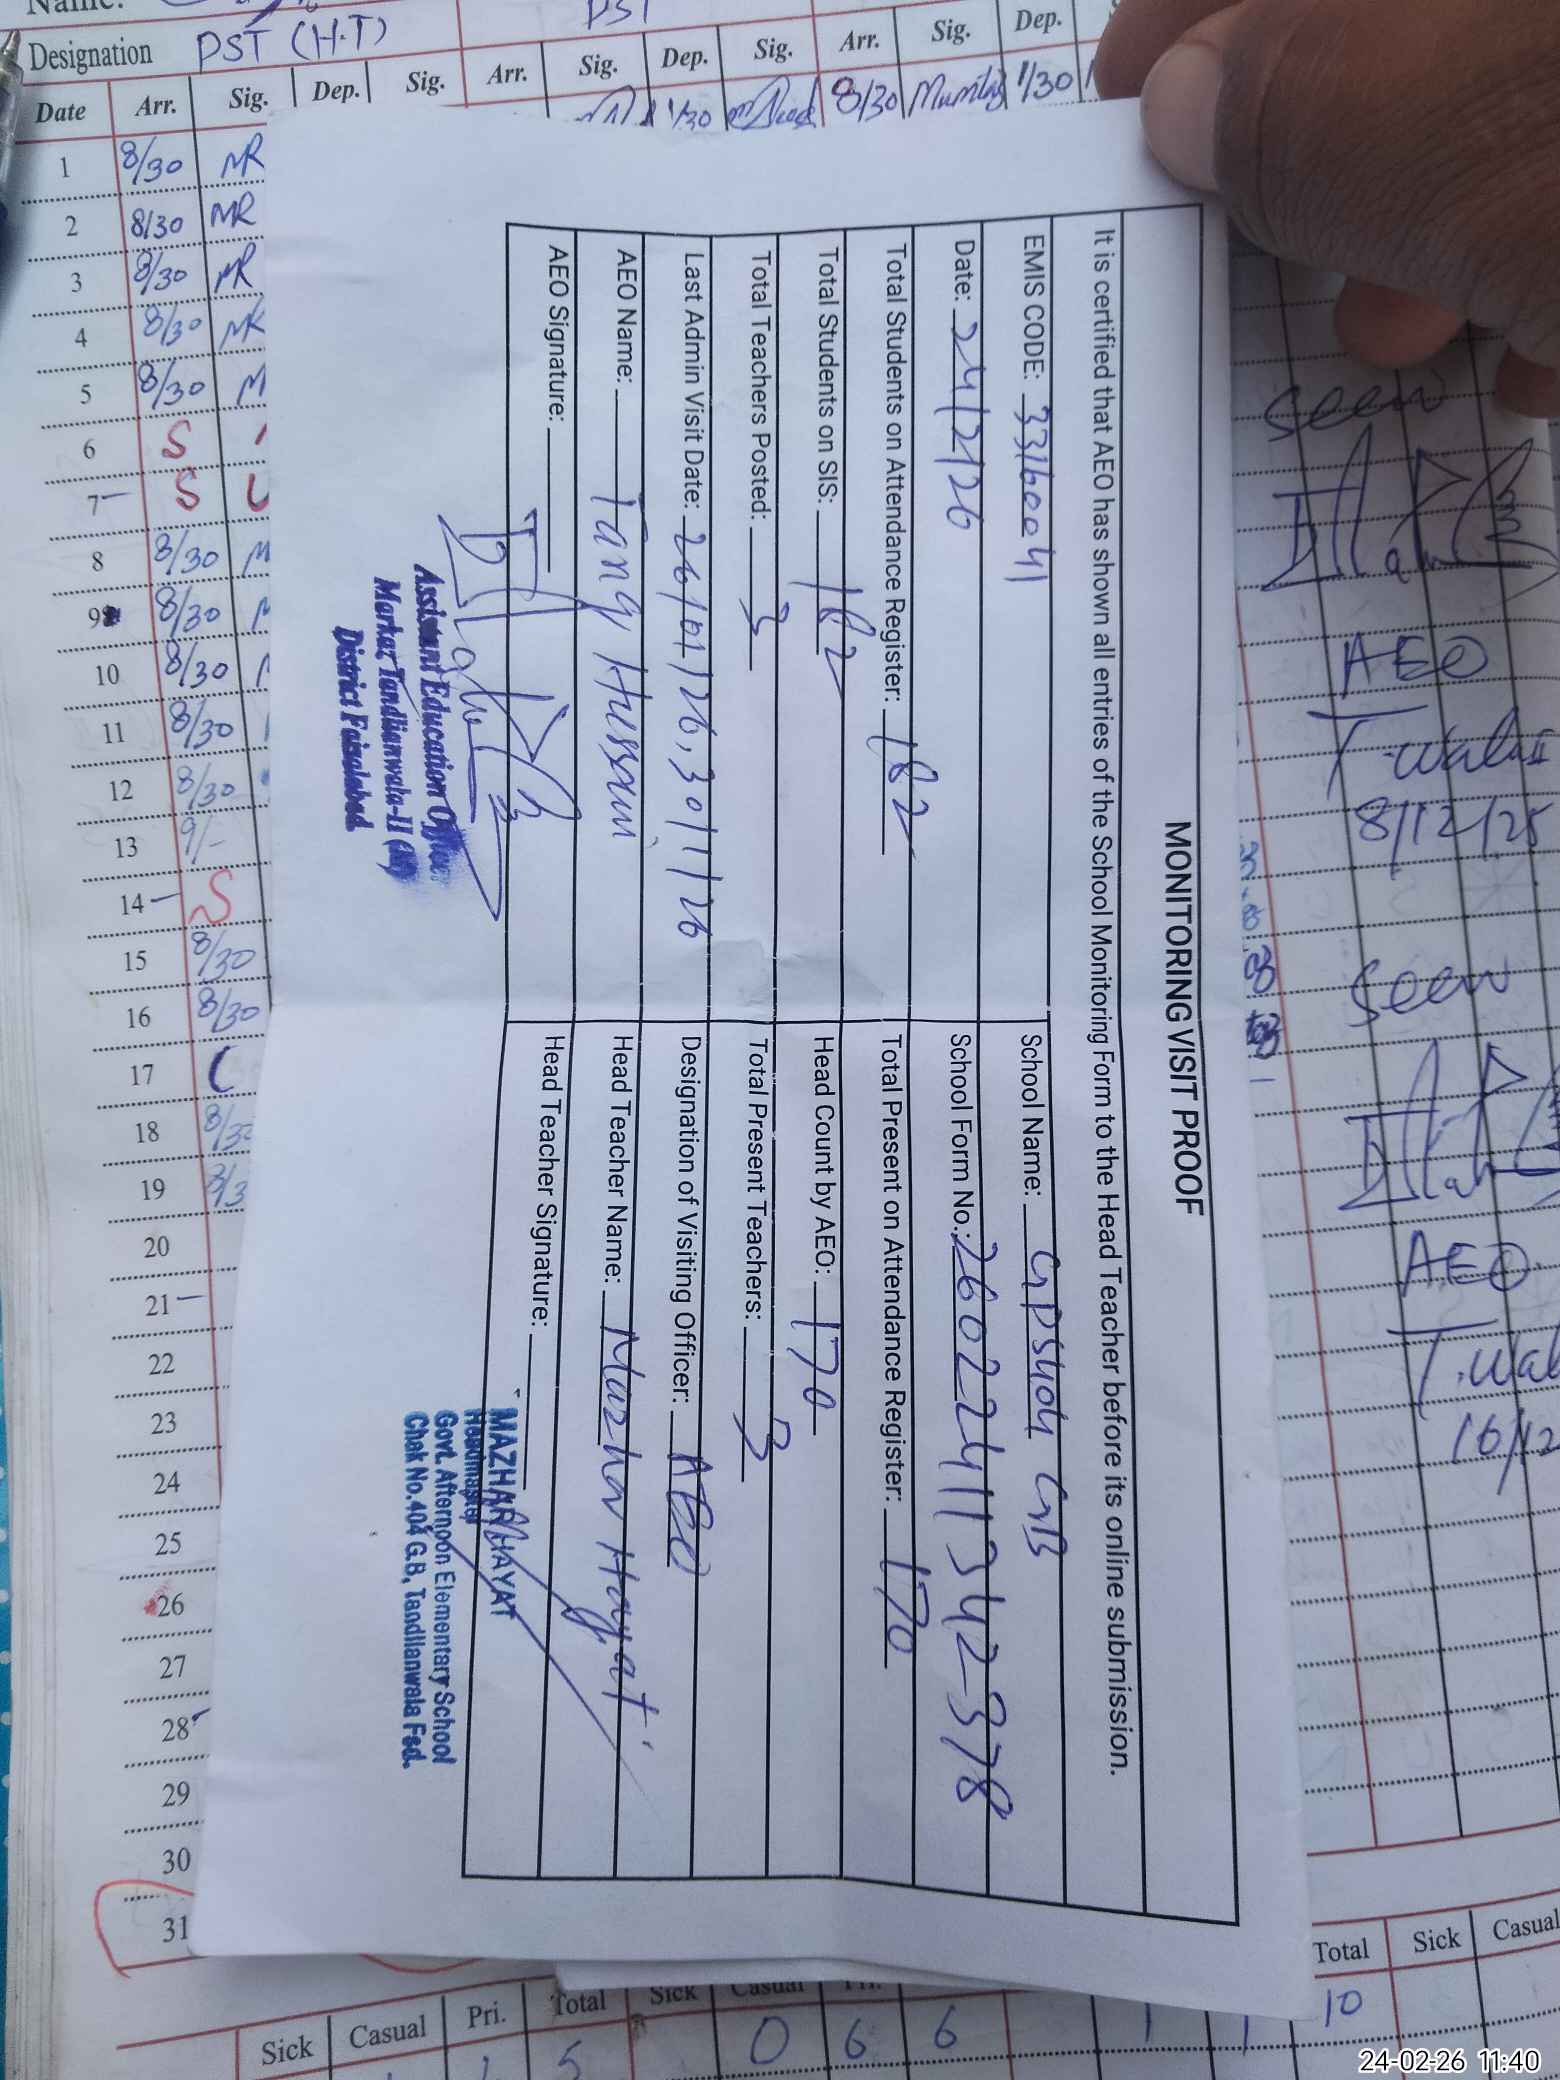 Name:
Designation PST (H.T)
PST
Date Arr. Sig. Dep. Sig. Arr. Sig. Dep. Sig. Arr. Sig. Dep.
1/30 8/30 Mumtaz 1/30
1 8/30 MR
2 8/30 MR
3 8/30 MR
4 8/30 MR
5 8/30 M
6 S
7 S
8 8/30 M
9 8/30
10 8/30
11 8/30
12 8/30
13 9/-
14 S
15 8/30
16 8/30
17
18 8/30
19 8/3
20
21
22
23
24
25
26
27
28
29
30
31
MONITORING VISIT PROOF
It is certified that AEO has shown all entries of the School Monitoring Form to the Head Teacher before its online submission.
EMIS CODE: 33160041 School Name: GPS 404 GB
Date: 24/2/26 School Form No.: 26022411342-378
Total Students on Attendance Register: 182 Total Present on Attendance Register: 170
Total Students on SIS: 182 Head Count by AEO: 170
Total Teachers Posted: 3 Total Present Teachers: 3
Last Admin Visit Date: 26/01/26, 30/1/26 Designation of Visiting Officer: AEO
AEO Name: Tariq Hussain Head Teacher Name: Mazhar Hayat
AEO Signature: Head Teacher Signature:
Assistant Education Officer
Markaz Tandlianwala-II
District Faisalabad
MAZHAR HAYAT
Headmaster
Govt. Afternoon Elementary School
Chak No.404 G.B, Tandlianwala Fsd.
Seen
AEO
T.wala II
8/12/25
Seen
AEO
T.wal
16/12
Sick Casual Pri. Total Sick Casual Pri. Total Sick Casual
5 0 6 6 1 1 10
24-02-26 11:40